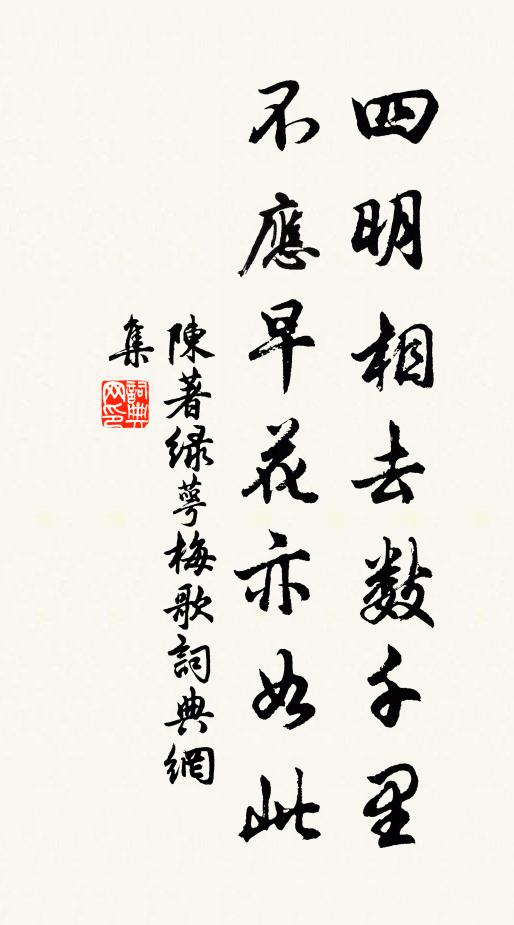 四明相去数千里
不應早花亦如此
陳著緑萼梅歌詞典網
集
詞典
网印